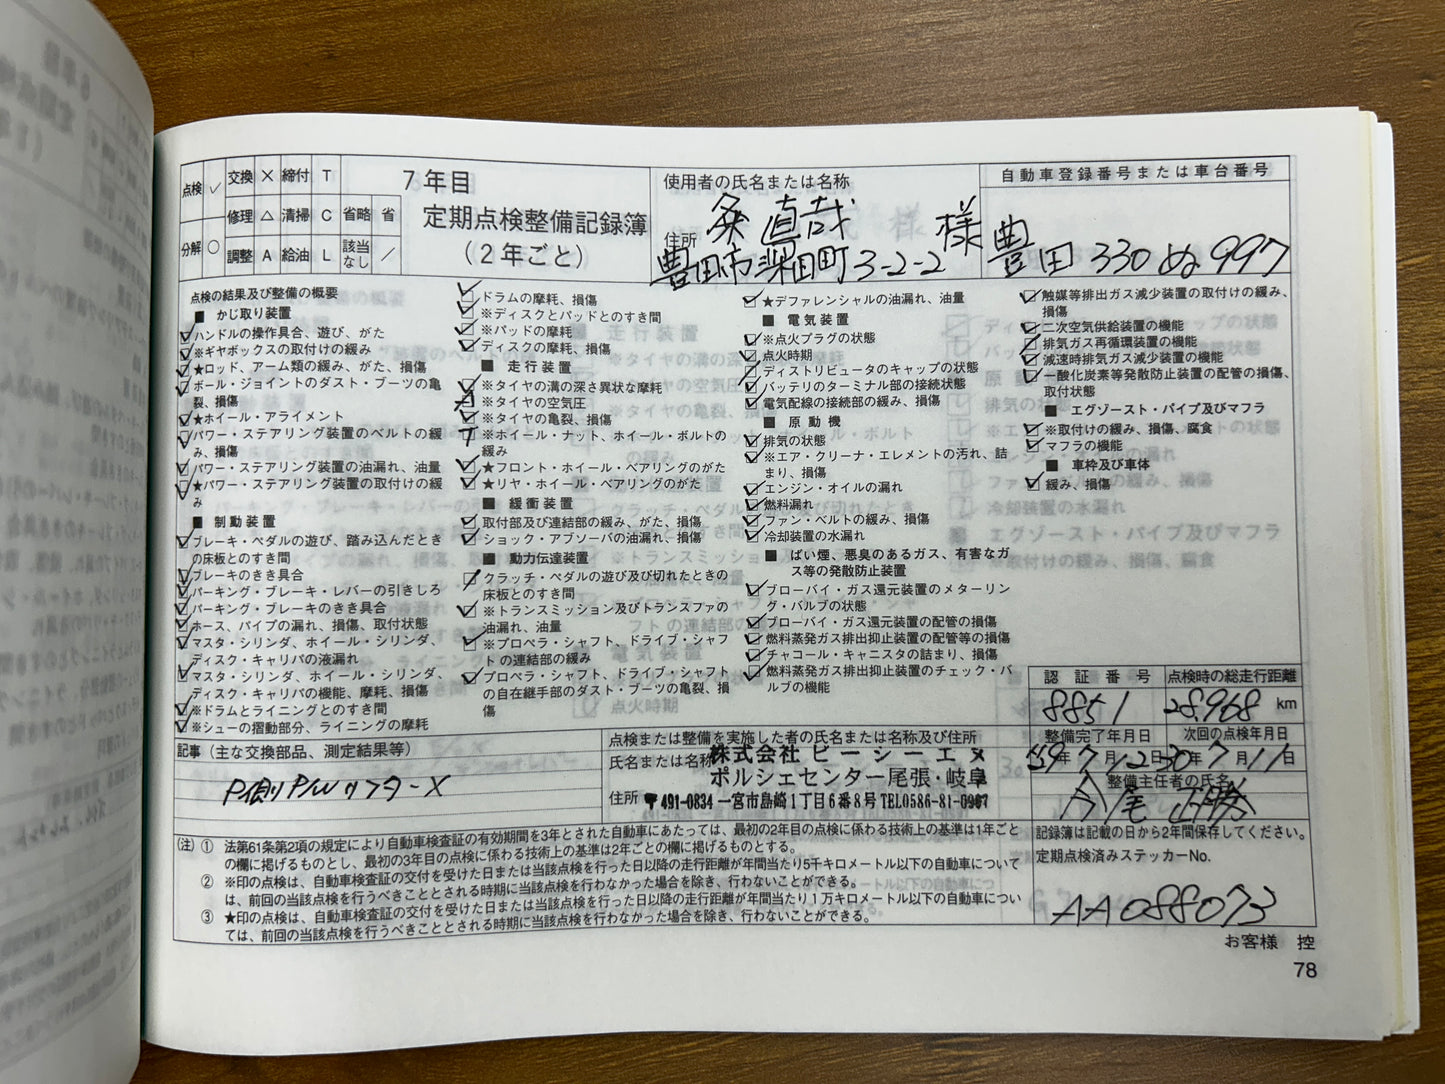 点検 ✓ 交換 × 締付 T
修理 △ 清掃 C 省略 省
分解 ○ 調整 A 給油 L 該当なし ／
7年目
定期点検整備記録簿
(2年ごと)
使用者の氏名または名称
粂 直哉 様
住所
豊田市深田町3-2-2
自動車登録番号または車台番号
豊田 330 ぬ 997
点検の結果及び整備の概要
■ かじ取り装置
ハンドルの操作具合、遊び、がた
※ギヤボックスの取付けの緩み
★ロッド、アーム類の緩み、がた、損傷
ボール・ジョイントのダスト・ブーツの亀
裂、損傷
★ホイール・アライメント
パワー・ステアリング装置のベルトの緩
み、損傷
パワー・ステアリング装置の油漏れ、油量
★パワー・ステアリング装置の取付けの緩
み
■ 制動装置
ブレーキ・ペダルの遊び、踏み込んだとき
の床板とのすき間
ブレーキのきき具合
パーキング・ブレーキ・レバーの引きしろ
パーキング・ブレーキのきき具合
ホース、パイプの漏れ、損傷、取付状態
マスタ・シリンダ、ホイール・シリンダ、
ディスク・キャリパの液漏れ
マスタ・シリンダ、ホイール・シリンダ、
ディスク・キャリパの機能、摩耗、損傷
※ドラムとライニングとのすき間
※シューの摺動部分、ライニングの摩耗
ドラムの摩耗、損傷
※ディスクとパッドとのすき間
※パッドの摩耗
ディスクの摩耗、損傷
■ 走行装置
※タイヤの溝の深さ異状な摩耗
※タイヤの空気圧
※タイヤの亀裂、損傷
※ホイール・ナット、ホイール・ボルトの
緩み
★フロント・ホイール・ベアリングのがた
★リヤ・ホイール・ベアリングのがた
■ 緩衝装置
取付部及び連結部の緩み、がた、損傷
ショック・アブソーバの油漏れ、損傷
■ 動力伝達装置
クラッチ・ペダルの遊び及び切れたときの
床板とのすき間
※トランスミッション及びトランスファの
油漏れ、油量
※プロペラ・シャフト、ドライブ・シャフ
トの連結部の緩み
プロペラ・シャフト、ドライブ・シャフト
の自在継手部のダスト・ブーツの亀裂、損
傷
★デファレンシャルの油漏れ、油量
■ 電気装置
※点火プラグの状態
点火時期
ディストリビュータのキャップの状態
バッテリのターミナル部の接続状態
電気配線の接続部の緩み、損傷
■ 原動機
排気の状態
※エア・クリーナ・エレメントの汚れ、詰
まり、損傷
エンジン・オイルの漏れ
燃料漏れ
ファン・ベルトの緩み、損傷
冷却装置の水漏れ
■ ばい煙、悪臭のあるガス、有害なガ
ス等の発散防止装置
ブローバイ・ガス還元装置のメターリン
グ・バルブの状態
ブローバイ・ガス還元装置の配管の損傷
燃料蒸発ガス排出抑止装置の配管等の損傷
チャコール・キャニスタの詰まり、損傷
燃料蒸発ガス排出抑止装置のチェック・バ
ルブの機能
触媒等排出ガス減少装置の取付けの緩み、
損傷
二次空気供給装置の機能
排気ガス再循環装置の機能
減速時排気ガス減少装置の機能
一酸化炭素等発散防止装置の配管の損傷、
取付状態
■ エグゾースト・パイプ及びマフラ
※取付けの緩み、損傷、腐食
マフラの機能
■ 車枠及び車体
緩み、損傷
認証番号 点検時の総走行距離
8851 28,968 km
整備完了年月日 次回の点検年月日
29年7月12日 30年7月11日
整備主任者の氏名
今尾 正勝
記事(主な交換部品、測定結果等)
P側P/Wリフター×
点検または整備を実施した者の氏名または名称及び住所
氏名または名称 株式会社 ピーシーエヌ
ポルシェセンター尾張・岐阜
住所 〒491-0834 一宮市島崎1丁目6番8号 TEL0586-81-0907
(注) ① 法第61条第2項の規定により自動車検査証の有効期間を3年とされた自動車にあたっては、最初の2年目の点検に係わる技術上の基準は1年ごと
の欄に掲げるものとし、最初の3年目の点検に係わる技術上の基準は2年ごとの欄に掲げるものとする。
② ※印の点検は、自動車検査証の交付を受けた日または当該点検を行った日以降の走行距離が年間当たり5千キロメートル以下の自動車について
は、前回の当該点検を行うべきこととされる時期に当該点検を行わなかった場合を除き、行わないことができる。
③ ★印の点検は、自動車検査証の交付を受けた日または当該点検を行った日以降の走行距離が年間当たり1万キロメートル以下の自動車につい
ては、前回の当該点検を行うべきこととされる時期に当該点検を行わなかった場合を除き、行わないことができる。
記録簿は記載の日から2年間保存してください。
定期点検済みステッカーNo.
AA088073
お客様 控
78